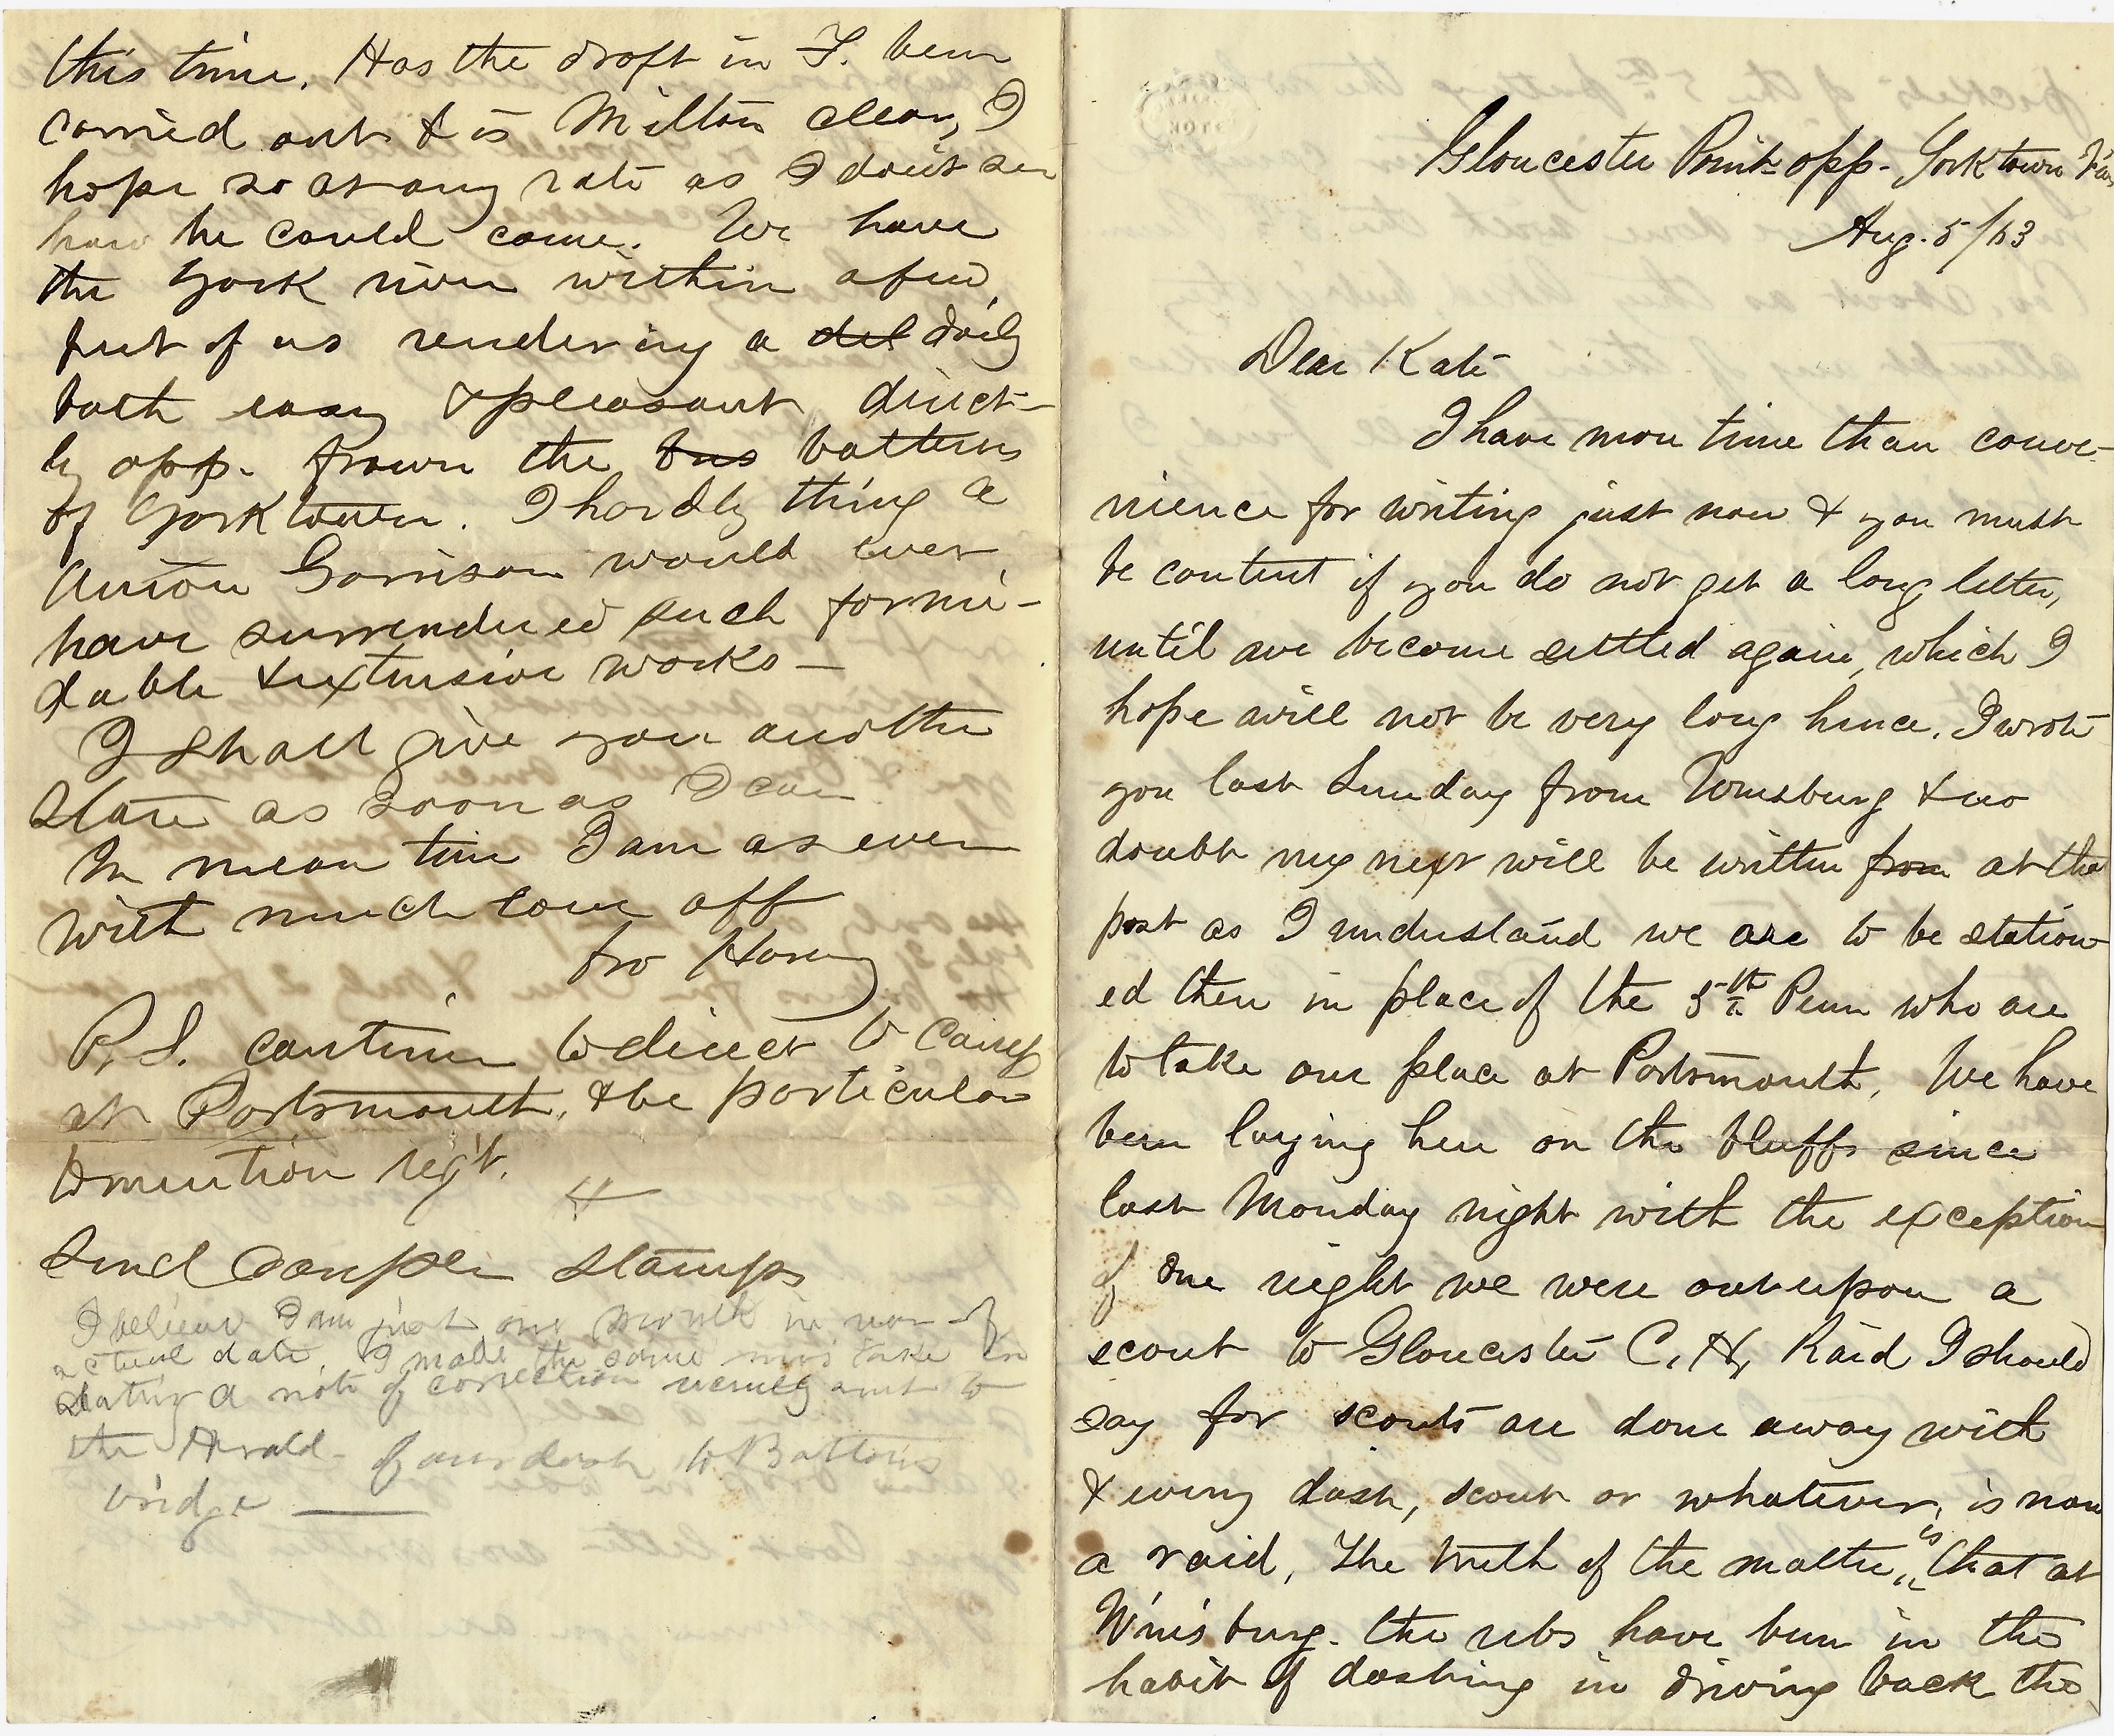 Gloucester Point opp. Yorktown Va
Aug. 5/63
Dear Kate
I have more time than conve-
nience for writing just now & you must
be content if you do not get a long letter,
until we become settled again, which I
hope will not be very long hence. I wrote
you last Sunday from Wmsburg & no
doubt my next will be written from at the
post as I understand we are to be station-
ed there in place of the 5th Penn who are
to take our place at Portsmouth. We have
been laying here on the bluffs since
last Monday night with the exception
of one night we were out upon a
scout to Gloucester C. H, Raid I should
say for scouts are done away with
& every dash, scout or whatever, is now
a raid, The truth of the matter is that at
Wmsburg. the rebs have been in the
habit of dashing in driving back the
this time. Has the draft in F. been
carried out & is Milton clear, I
hope so at any rate as I don't see
how he could come. We have
the York river within a few
feet of us rendering a del daily
bath easy & pleasant direct-
ly opp. frown the bas batteries
of Yorktown. I hardly thing a
Union Garrison would ever
have surrendered such formi-
dable & extensive works -
I shall give you another
as soon as I can
In mean time I am as ever
with much love aff
bro Harry
P. S. continue to direct to Camp
at Portsmouth, & be particular
to mention regt.
H
Send Couple stamps
I believe I am just one month in rear of
actual date. I made the same mistake in
dating a note of correction recently sent to
the Herald - of our dash to Bottoms
bridge